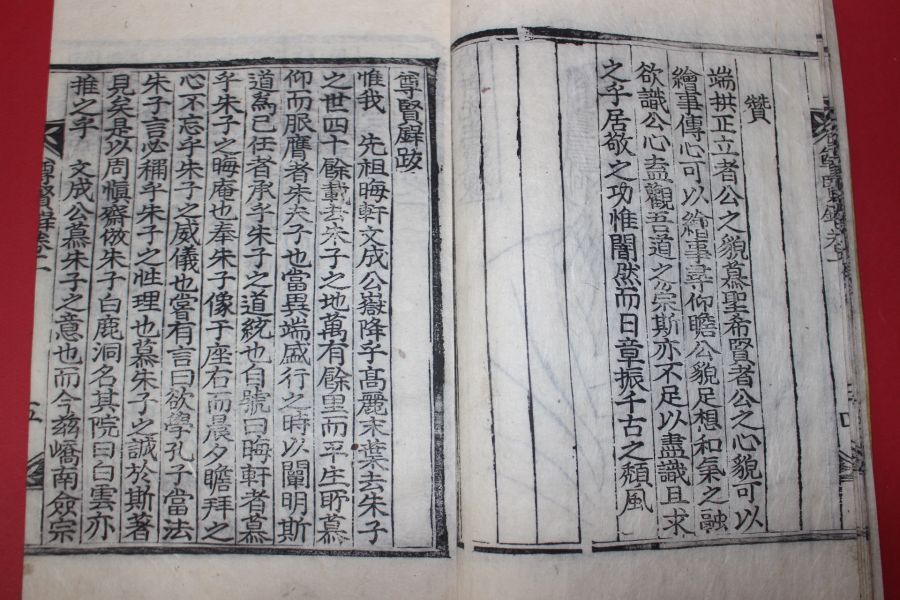 贊
端拱正立者公之貌慕聖希賢者公之心貌可以
繪事傳心可以繪事尋仰瞻公貌足想和氣之融
欲識公心盍觀吾道之宗斯亦不足以盡識且求
之乎居敬之功惟闇然而日章振千古之頹風
尊賢錄跋
惟我 先祖晦軒文成公嶽降乎高麗末葉去朱子
之世四十餘載去朱子之地萬有餘里而平生所慕
仰而服膺者朱夫子也當異端盛行之時以闡明斯
道爲己任者承乎朱子之道統也自號曰晦軒者慕
乎朱子之晦庵也奉朱子像于座右而晨夕瞻拜之
心不忘乎朱子之威儀也嘗有言曰欲學孔子當法
朱子言必稱乎朱子之性理也慕朱子之誠於斯著
見矣是以周愼齋倣朱子白鹿洞名其院曰白雲亦
推之乎 文成公慕朱子之意也而今玆嶠南僉宗
五
四